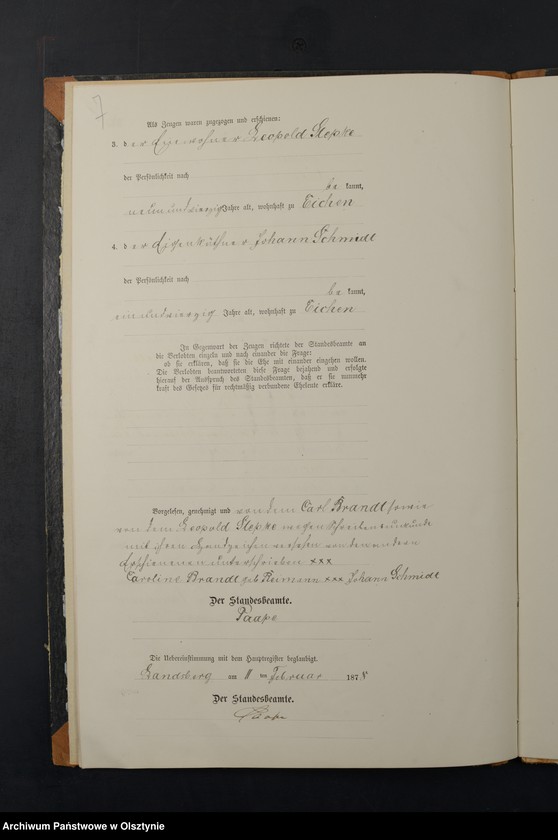 7
Als Zeugen waren zugezogen und erschienen:
3. der Eigenwohner Leopold Slopke
der Persönlichkeit nach
be kannt,
neunundvierzig Jahre alt, wohnhaft zu Eichen
4. der Eigenkäthner Johann Schmidt
der Persönlichkeit nach
be kannt,
einundvierzig Jahre alt, wohnhaft zu Eichen
In Gegenwart der Zeugen richtete der Standesbeamte an
die Verlobten einzeln und nach einander die Frage:
ob sie erklären, daß sie die Ehe mit einander eingehen wollen.
Die Verlobten beantworteten diese Frage bejahend und erfolgte
hierauf der Ausspruch des Standesbeamten, daß er sie nunmehr
kraft des Gesetzes für rechtmäßig verbundene Eheleute erkläre.
Vorgelesen, genehmigt und von dem Carl Brandt sowie
von dem Leopold Slopke wegen Schreibensunkunde
mit ihren Handzeichen versehen von den andern
Erschienenen unterschrieben xxx
Caroline Brandt geb Reimann xxx Johann Schmidt
Der Standesbeamte.
Paape
Die Uebereinstimmung mit dem Hauptregister beglaubigt.
Landsberg am 11 ten Februar 187
Der Standesbeamte.
Paape
Archiwum Państwowe w Olsztynie